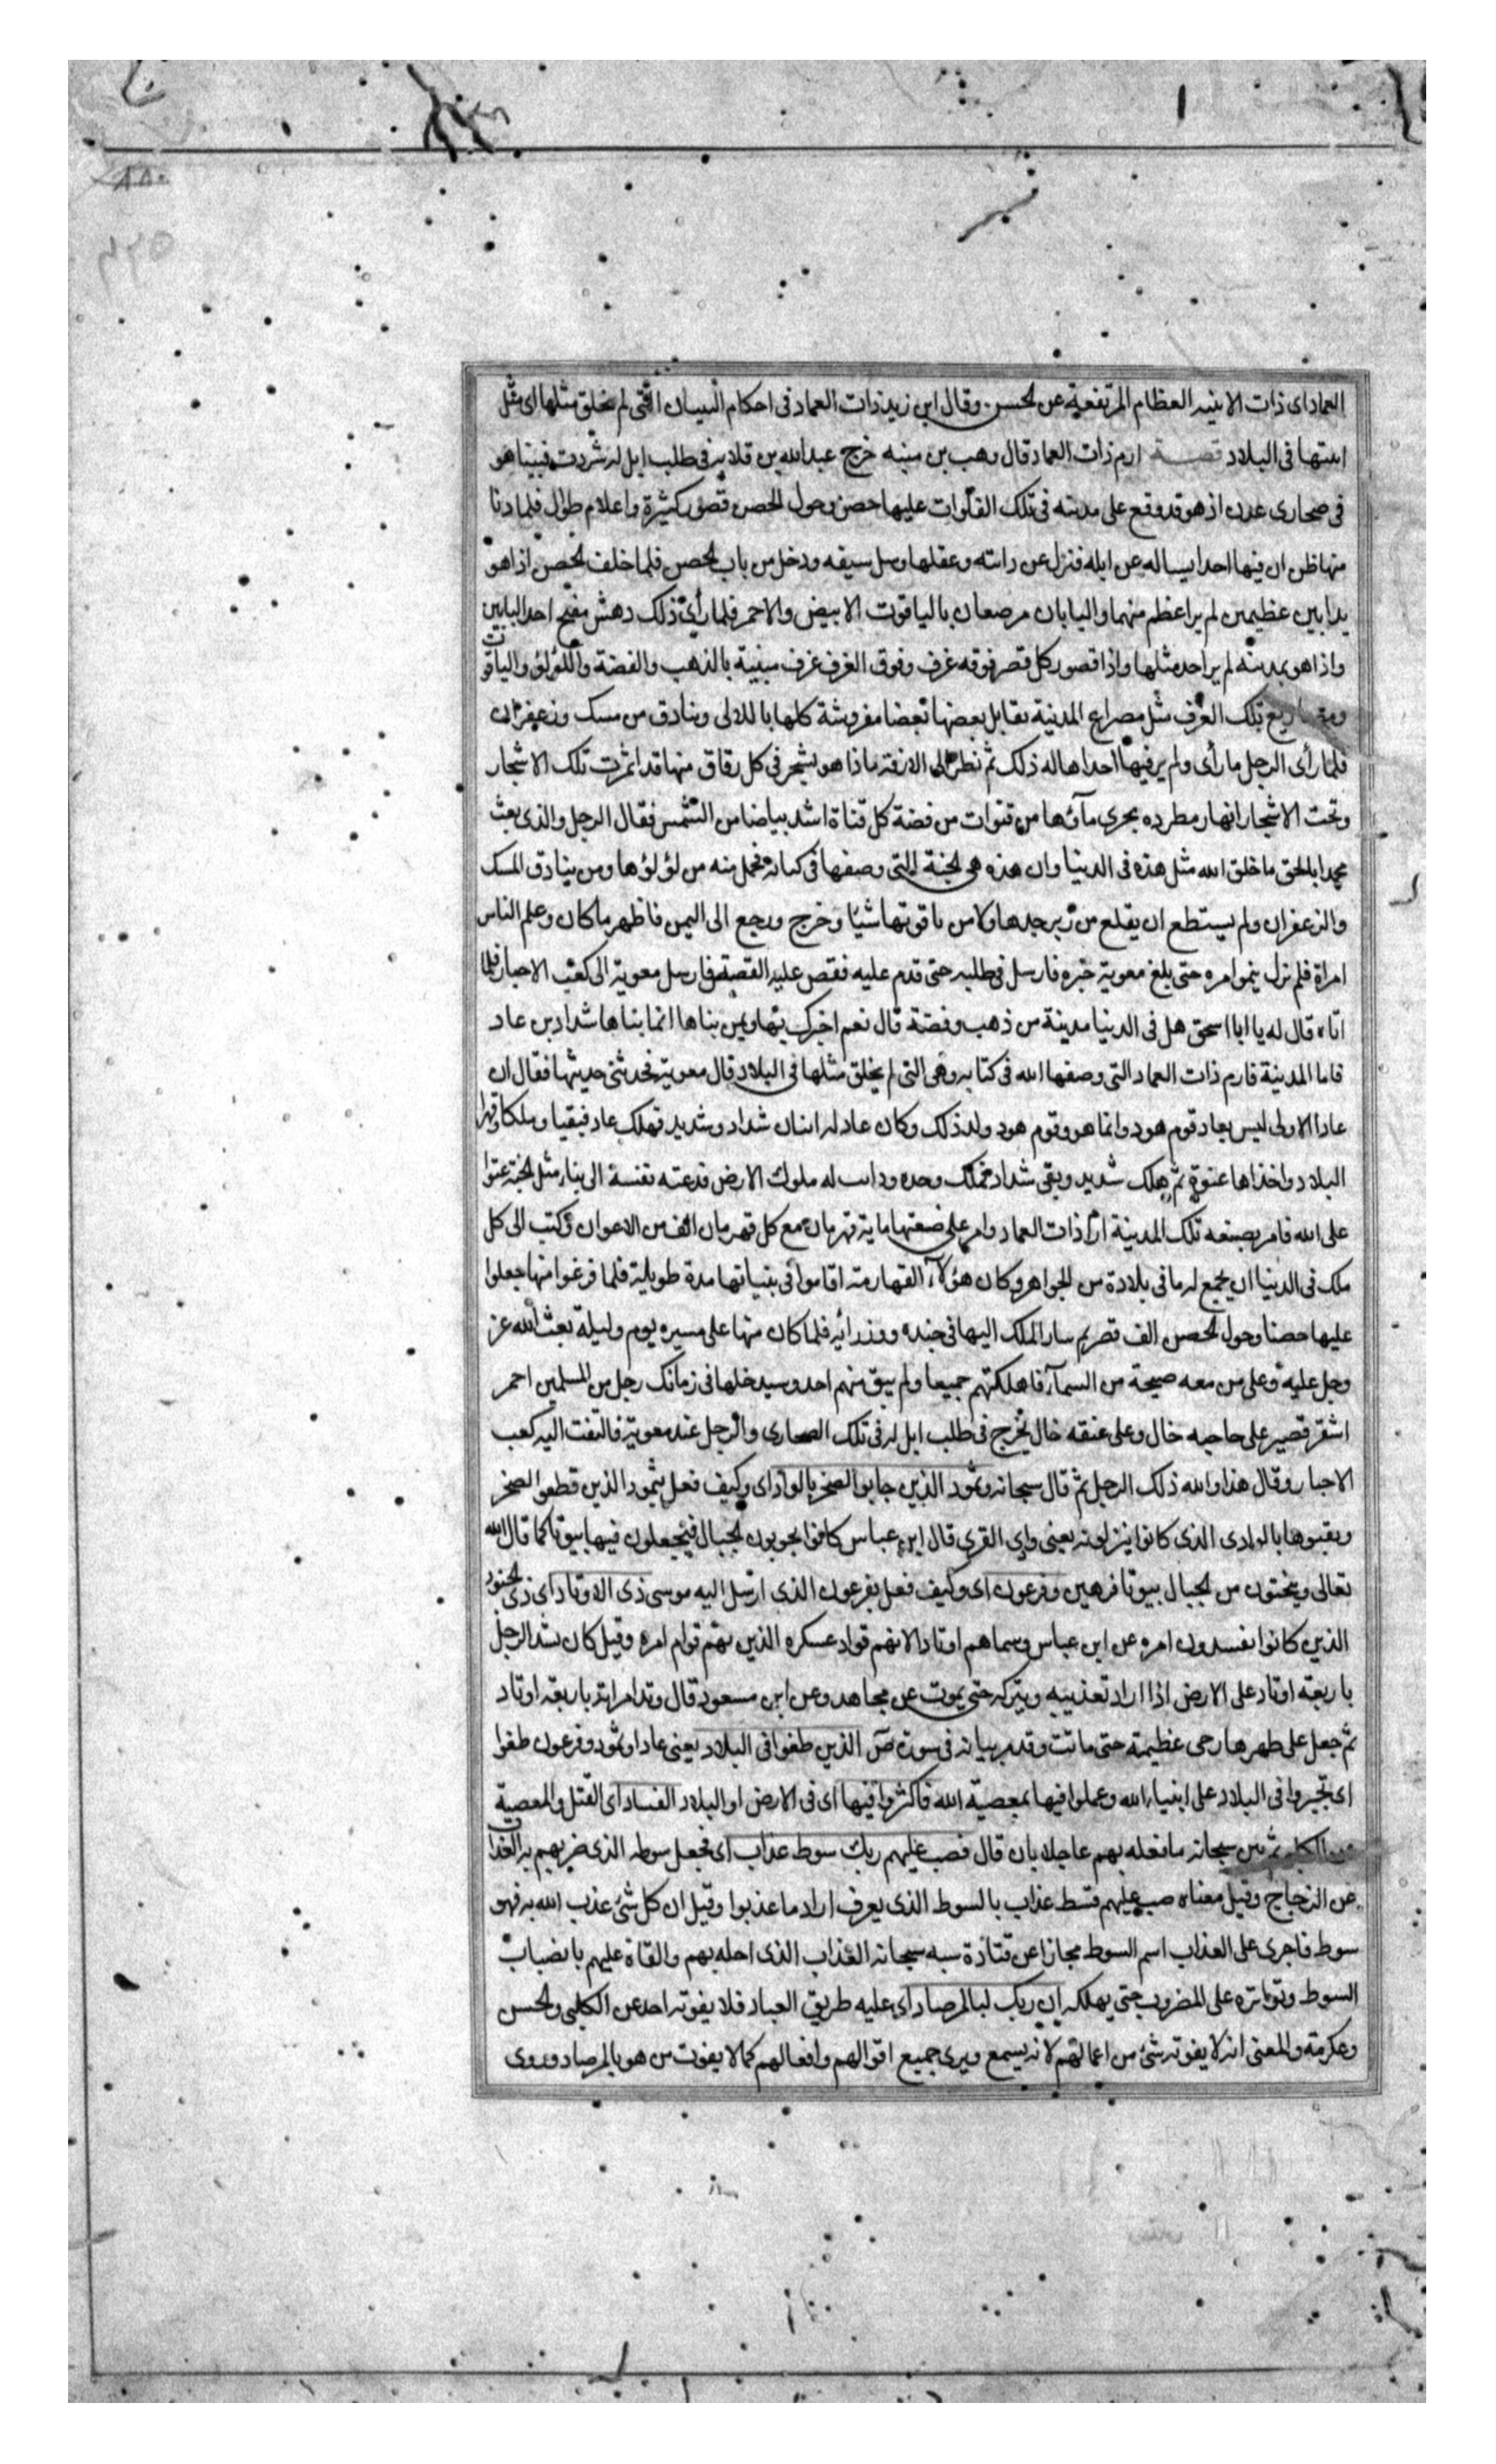 العماد ای ذات الابنیه العظام المرتفعة عن الحسن وقال ابن زید ذات العماد فی احکام البنیان التی لم یخلق مثلها ای مثل
ابنتها فی البلاد قصة ارم ذات العماد قال وهب بن منبه خرج عبدالله بن قلابه فی طلب ابل له شردت فبینا هو
فی صحاری عدن اذ هو قد وقع علی مدینه فی تلک الفلوات علیها حصن وحول الحصن قصور کثیرة واعلام طوال فلما دنا
منها ظن ان فیها احدا یساله عن ابله فنزل عن دابته وعقلها وسل سیفه ودخل من باب الحصن فلما خلف الحصن اذا هو
بدابین عظیمین لم یر اعظم منهما والبابان مرصعان بالیاقوت الابیض والاحمر فلما رأی ذلک دهش ففتح احد البابین
واذا هو بمدینه لم یر احد مثلها واذا قصور کل قصر فوقه غرف وفوق الغرف غرف مبنیة بالذهب والفضة واللؤلؤ والیاقوت
ومصاریع تلک الغرف مثل مصراع المدینة یقابل بعضها بعضا مفروشة کلها باللالی وبنادق من مسک وزعفران
فلما رأی الرجل ما رأی ولم یر فیها احدا هاله ذلک ثم نظر الی الازقة فاذا هو بشجر فی کل زقاق منها قد اثمرت تلک الاشجار
وتحت الاشجار انهار مطرده یجری مآؤها من قنوات من فضة کل قناة اشد بیاضا من الشمس فقال الرجل والذی بعث
محمدا بالحق ما خلق الله مثل هذه فی الدنیا وان هذه هی الجنة التی وصفها فی کتابه فحمل منه من لؤلؤها ومن بنادق المسک
والزعفران ولم یستطع ان یقلع من زبرجدها ولا من یاقوتها شیئا وخرج ورجع الی الیمن فاظهر ما کان وعلم الناس
امراة فلم نزل ینمو امره حتی بلغ معویة خبره فارسل فی طلبه حتی قدم علیه فقص علیه القصة فارسل معویة الی کعب الاحبار فلما
اتاه قال له یا ابا اسحق هل فی الدنیا مدینة من ذهب وفضة قال نعم اخبرک بها وبمن بناها انما بناها شداد بن عاد
فاما المدینة فارم ذات العماد التی وصفها الله فی کتابه وهی التی لم یخلق مثلها فی البلاد قال معویة فحدثنی حدیثها فقال ان
عادا الاولی لیس بعاد قوم هود وانما هود وقوم هود ولد ذلک وکان عاد له ابنان شداد وشدید فهلک عاد فبقیا وملکا وقهرا
البلاد واخذاها عنوة ثم هلک شدید وبقی شداد فملک وحده ودانت له ملوک الارض فدعته نفسه الی بناء مثل الجنة عتوا
علی الله فامر بصنعه تلک المدینة ارم ذات العماد وامر علی صنعتها مایة قهرمان مع کل قهرمان الف من الاعوان وکتب الی کل
ملک فی الدنیا ان یجمع له ما فی بلاده من الجواهر وکان هؤلآء القهارمة اقاموا فی بنیانها مدة طویلة فلما فرغوا منها جعلوا
علیها حصنا وحول الحصن الف قصر ثم سار الملک الیها فی جنده ووزرائه فلما کان منها علی مسیره یوم ولیلة بعث الله عز
وجل علیه وعلی من معه صیحة من السمآء فاهلکتهم جمیعا ولم یبق منهم احد وسیدخلها فی زمانک رجل من المسلمین احمر
اشقر قصیر علی حاجبه خال وعلی عنقه خال یخرج فی طلب ابل له فی تلک الصحاری والرجل عند معویة فالتفت الیه کعب
الاحبار وقال هذا والله ذلک الرجل ثم قال سبحانه وثمود الذین جابوا الصخر بالواد ای وکیف فعل بثمود الذین قطعوا الصخر
ونقبوها بالوادی الذی کانوا ینزلونه یعنی وادی القری قال ابن عباس کانوا یجوبون الجبال فیجعلون فیها بیوتا کما قال الله
تعالی وینحتون من الجبال بیوتا فرهین وفرعون ای وکیف فعل بفرعون الذی ارسل الیه موسی ذی الاوتاد ای ذی الجنود
الذین کانوا یفسدون امره عن ابن عباس وسماهم اوتادا لانهم قواد عسکره الذین بهم قوام امره وقیل کان یشد الرجل
باربعة اوتاد علی الارض اذا اراد تعذیبه ویترکه حتی یموت عن مجاهد وعن ابن مسعود قال وتد امراته باربعة اوتاد
ثم جعل علی ظهرها رحی عظیمة حتی ماتت وقد مر بیانه فی سورة ص الذین طغوا فی البلاد یعنی عادا وثمود وفرعون طغوا
ای تجبروا فی البلاد علی انبیاء الله وعملوا فیها بمعصیة الله فاکثروا فیها ای فی الارض او البلاد الفساد ای القتل والمعصیة
عن الکلبی ثم بین سبحانه ما فعله بهم عاجلا بان قال فصب علیهم ربک سوط عذاب ای فجعل سوطه الذی ضربهم به العذاب
عن الزجاج وقیل معناه صب علیهم قسط عذاب بالسوط الذی یعرف اراد ما عذبوا وقیل ان کل شئ عذب الله به فهو
سوط فاجری علی العذاب اسم السوط مجازا عن قتادة شبه سبحانه العذاب الذی احله بهم والقاه علیهم بانصباب
السوط وتواتره علی المضروب حتی یهلکه ان ربک لبالمرصاد ای علیه طریق العباد فلا یفوته احد عن الکلبی والحسن
وعکرمة والمعنی انه لا یفوته شئ من اعمالهم لانه یسمع ویری جمیع اقوالهم وافعالهم کما لا یفوت من هو بالمرصاد وروی